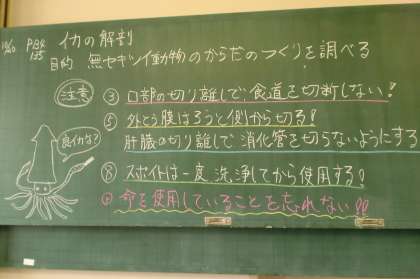 P134
135
イカの解剖
目的 無セキツイ動物のからだのつくりを調べる
注意
③ 口部の切り離しで、食道を切断しない!
⑤ 外とう膜はろうと側から切る!
肝臓の切り離しで消化管を切らないようにする
⑧ スポイトは一度洗浄してから使用する!
命を使用していることを忘れない!!
良イカな?